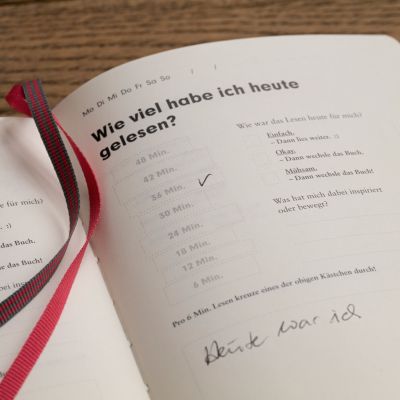 Mo Di Mi Do Fr Sa So / /
Wie viel habe ich heute
gelesen?
48 Min.
42 Min.
36 Min. ✓
30 Min.
24 Min.
18 Min.
12 Min.
6 Min.
Pro 6 Min. Lesen kreuze eins der obigen Kästchen durch!
Heute war ich
Wie war das Lesen heute für mich?
Einfach.
– Dann lies weiter. :)
Okay.
– Dann wechsle das Buch.
Mühsam.
– Dann wechsle das Buch!
Was hat mich dabei inspiriert
oder bewegt?
für mich?
. :)
das Buch.
e das Buch!
nspiriert